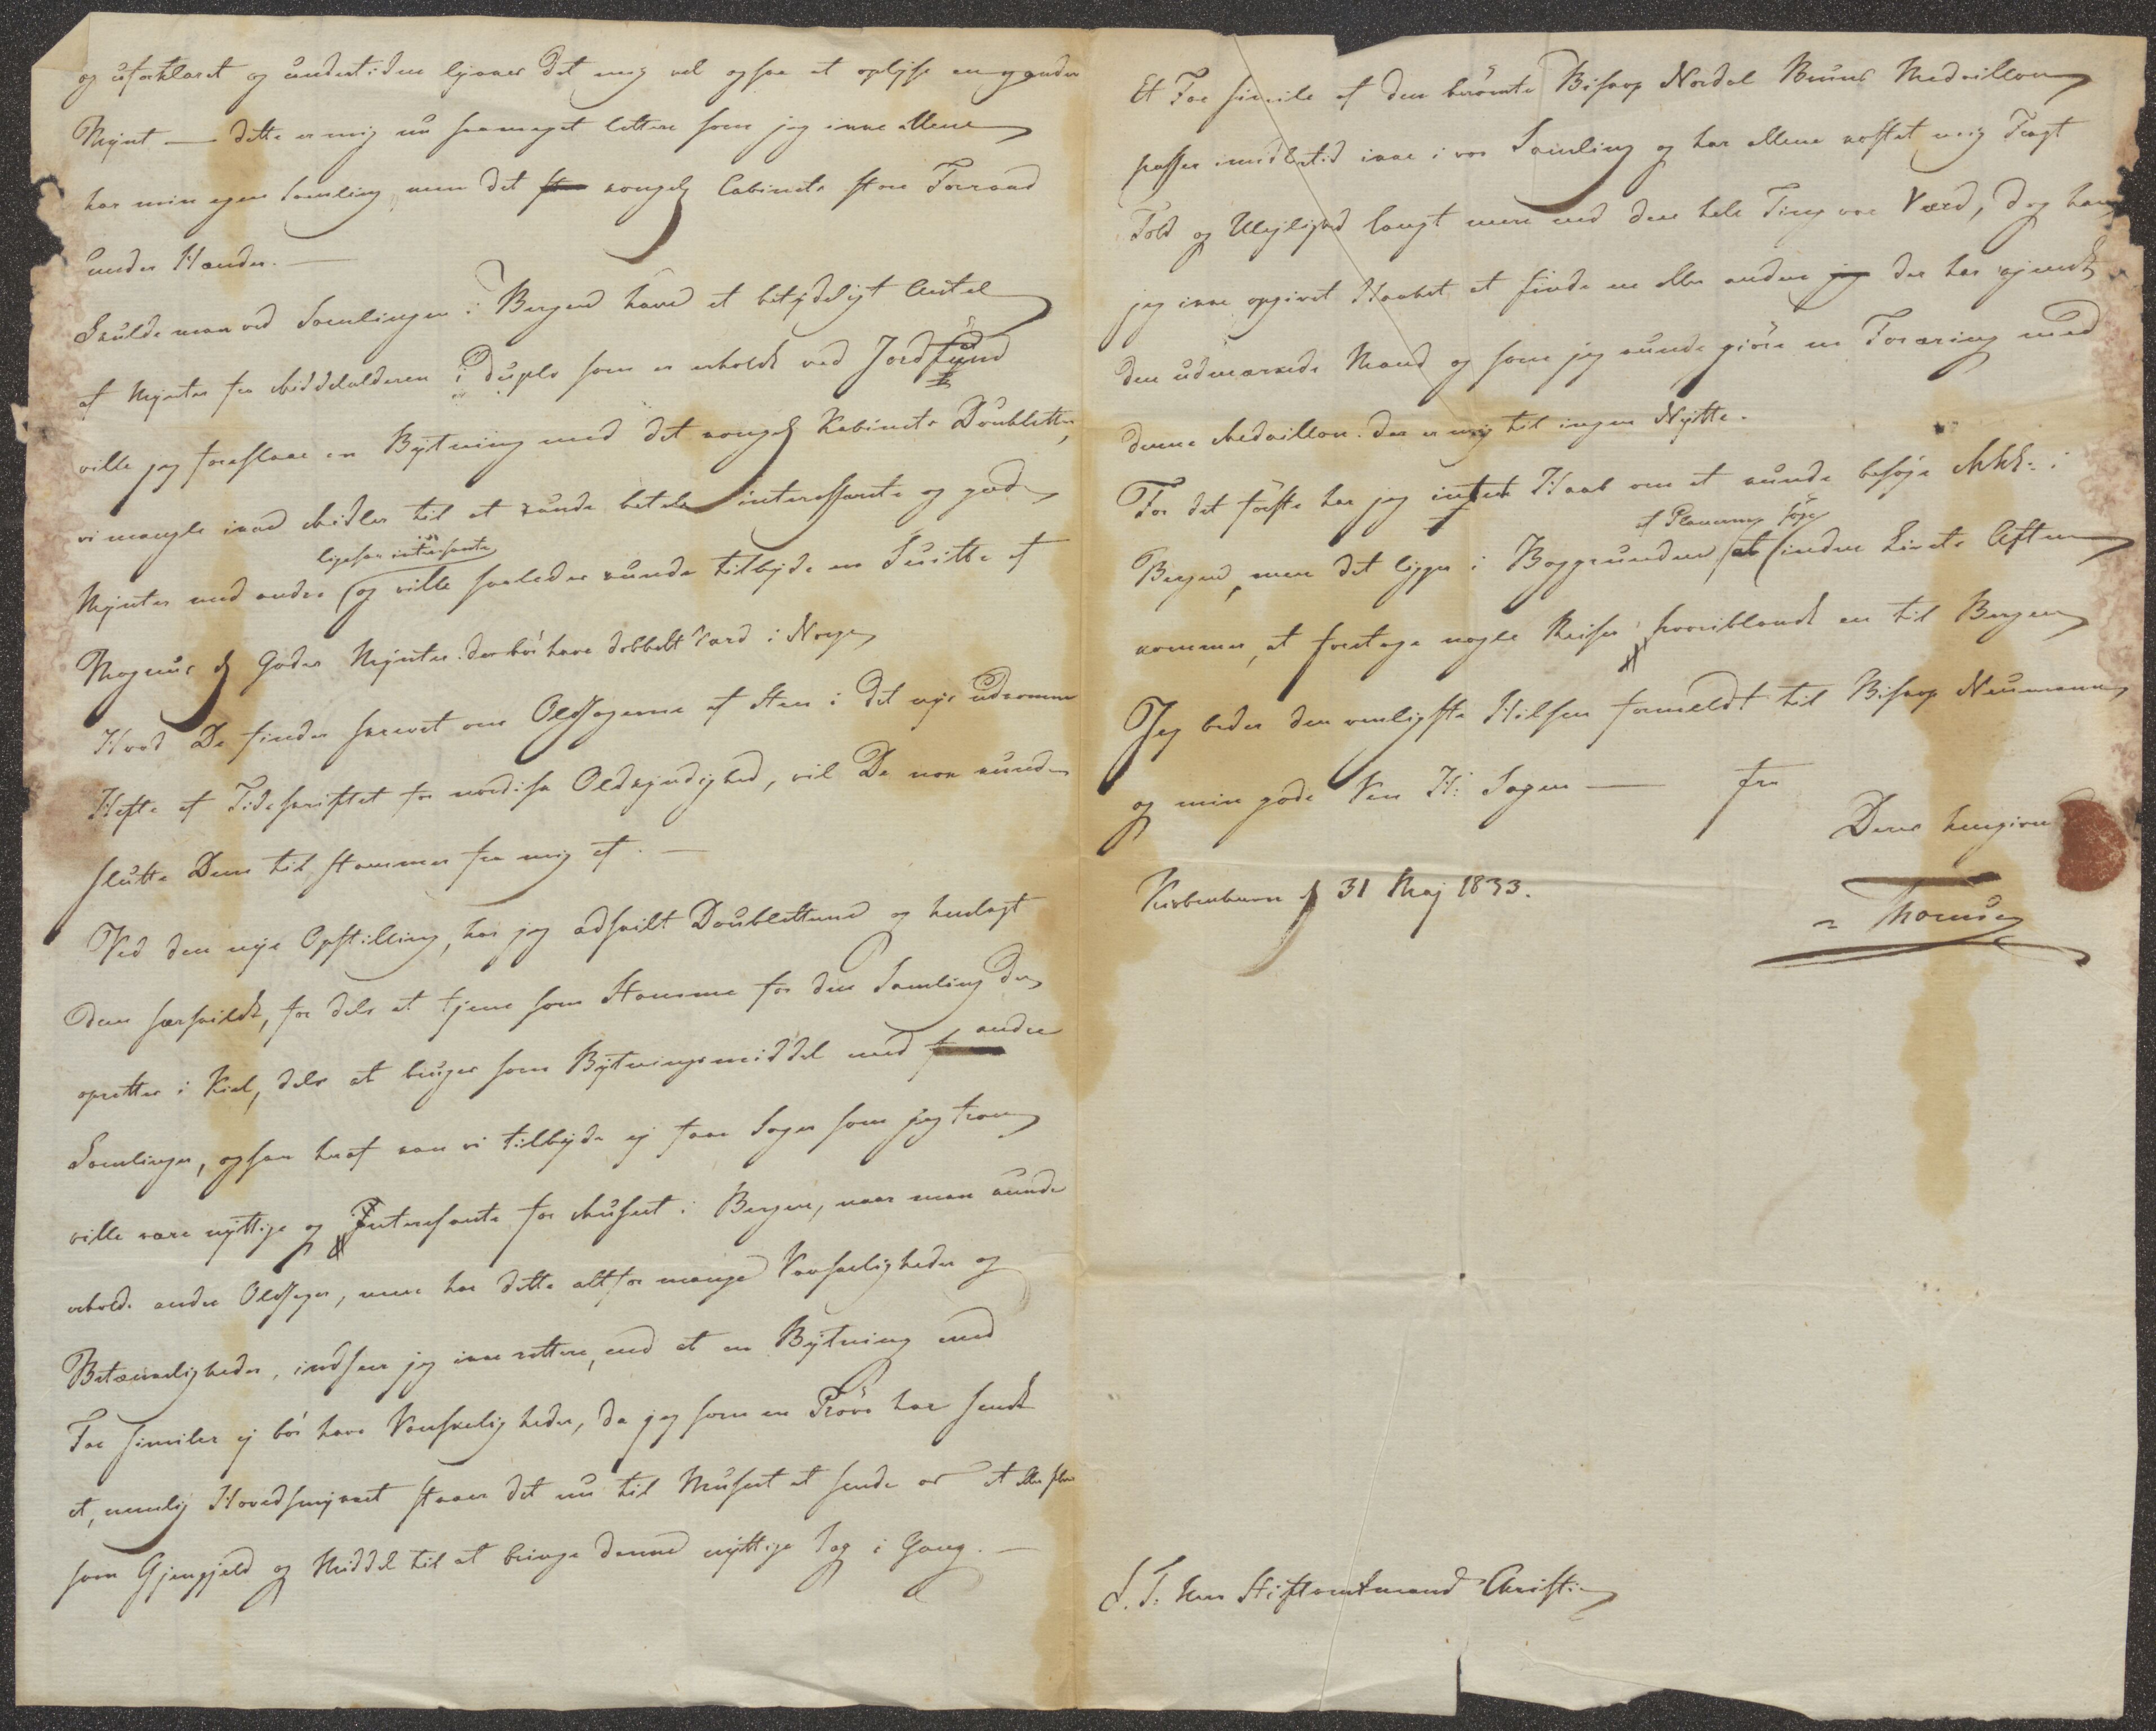 og uforklaret og undertiden lykkes det mig vel ogsaa at oplyse en og anden
Mynt — dette er mig nu saameget lettere som jeg ikke allene
har min egen Samling, men det kongelige Cabinets store Forraad
under Hænder. —
Skulde man ved Samlingen i Bergen have et betydeligt Antal
af Mynter fra Middelalderen i duplo som er erholdt ved Jordfund
ville jeg foreslaae en Bytning med det kongelige Kabinets Doubletter,
vi mangle ikke Midler til at kunde betale interessante og gode
ligesaa interessante
Mynter med andre og ville saaledes kunde tilbyde en Suitte af
Magnus d Godes Mynter der bör have dobbelt Værd i Norge
Hvad De finder skrevet om Oldsagerne af Sten i det nys udkomne
Hefte af Tidsskriftet for nordisk Oldkyndighed, vil De nok kunde
slutte Dem til stammer fra mig af. —
Ved den nye Opstilling, har jeg adskilt Doubletterne og henlagt
dem særskildt, for dels at tjene som Stamme for den Samling der
oprettes i Kiel, dels at bruges som Bytningsmiddel med andre
Samlinger, ogsaa heraf kan vi tilbyde ej faae Sager som jeg troer
ville være nyttige og Interesante for Museet i Bergen, naar man kunde
erholde andre Oldsager, men har dette altfor mange Vanskeligheder og
Betænkeligheder, indseer jeg ikke rettere, end at en Bytning med
Fac similer ej bör have Vanskeligheder, da jeg som en Pröve har sendt
et, nemlig Hovedsmykket staaer det nu til Museet at sende os et eller flere
som Gjengjeld og Middel til at bringe denne nyttige Sag i Gang. —
Et Fac simile af den berömte Biskop Nordal Bruns Medaillon
passer imidlertid ikke i vor Samling og har allene kostet mig Fragt
Told og Uleilighed langt mere end den hele Ting var Værd, dog har
jeg ikke opgivet Haabet at finde en eller anden der har kjendt
den udmærkede Mand og som jeg kunde giöre en Foræring med
denne Medaillon. der er mig til ingen Nytte.
For det förste har jeg intet Haab om at kunde besöge
af Planerne
Bergen, men det ligger i Baggrunden at inden Livets Aften
kommer, at foretage nogle Reiser hvoriblandt en til Bergen
Jeg beder den venligste Hilsen formeldt til Biskop Neumann
og min gode Ven H: Sagen — fra
Deres hengivne
Thomsen
Kiöbenhavn d 31 Maj 1833.
S. T. Herr Stiftamtmand Christie